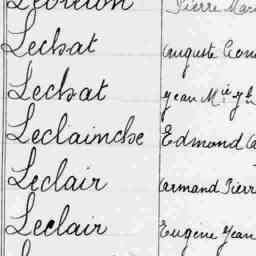 Lebreton Pierre Mari
Lechat Auguste
Lechat Jean M
Leclainche Edmond
Leclair Armand Pierr
Leclair Eugène Jean